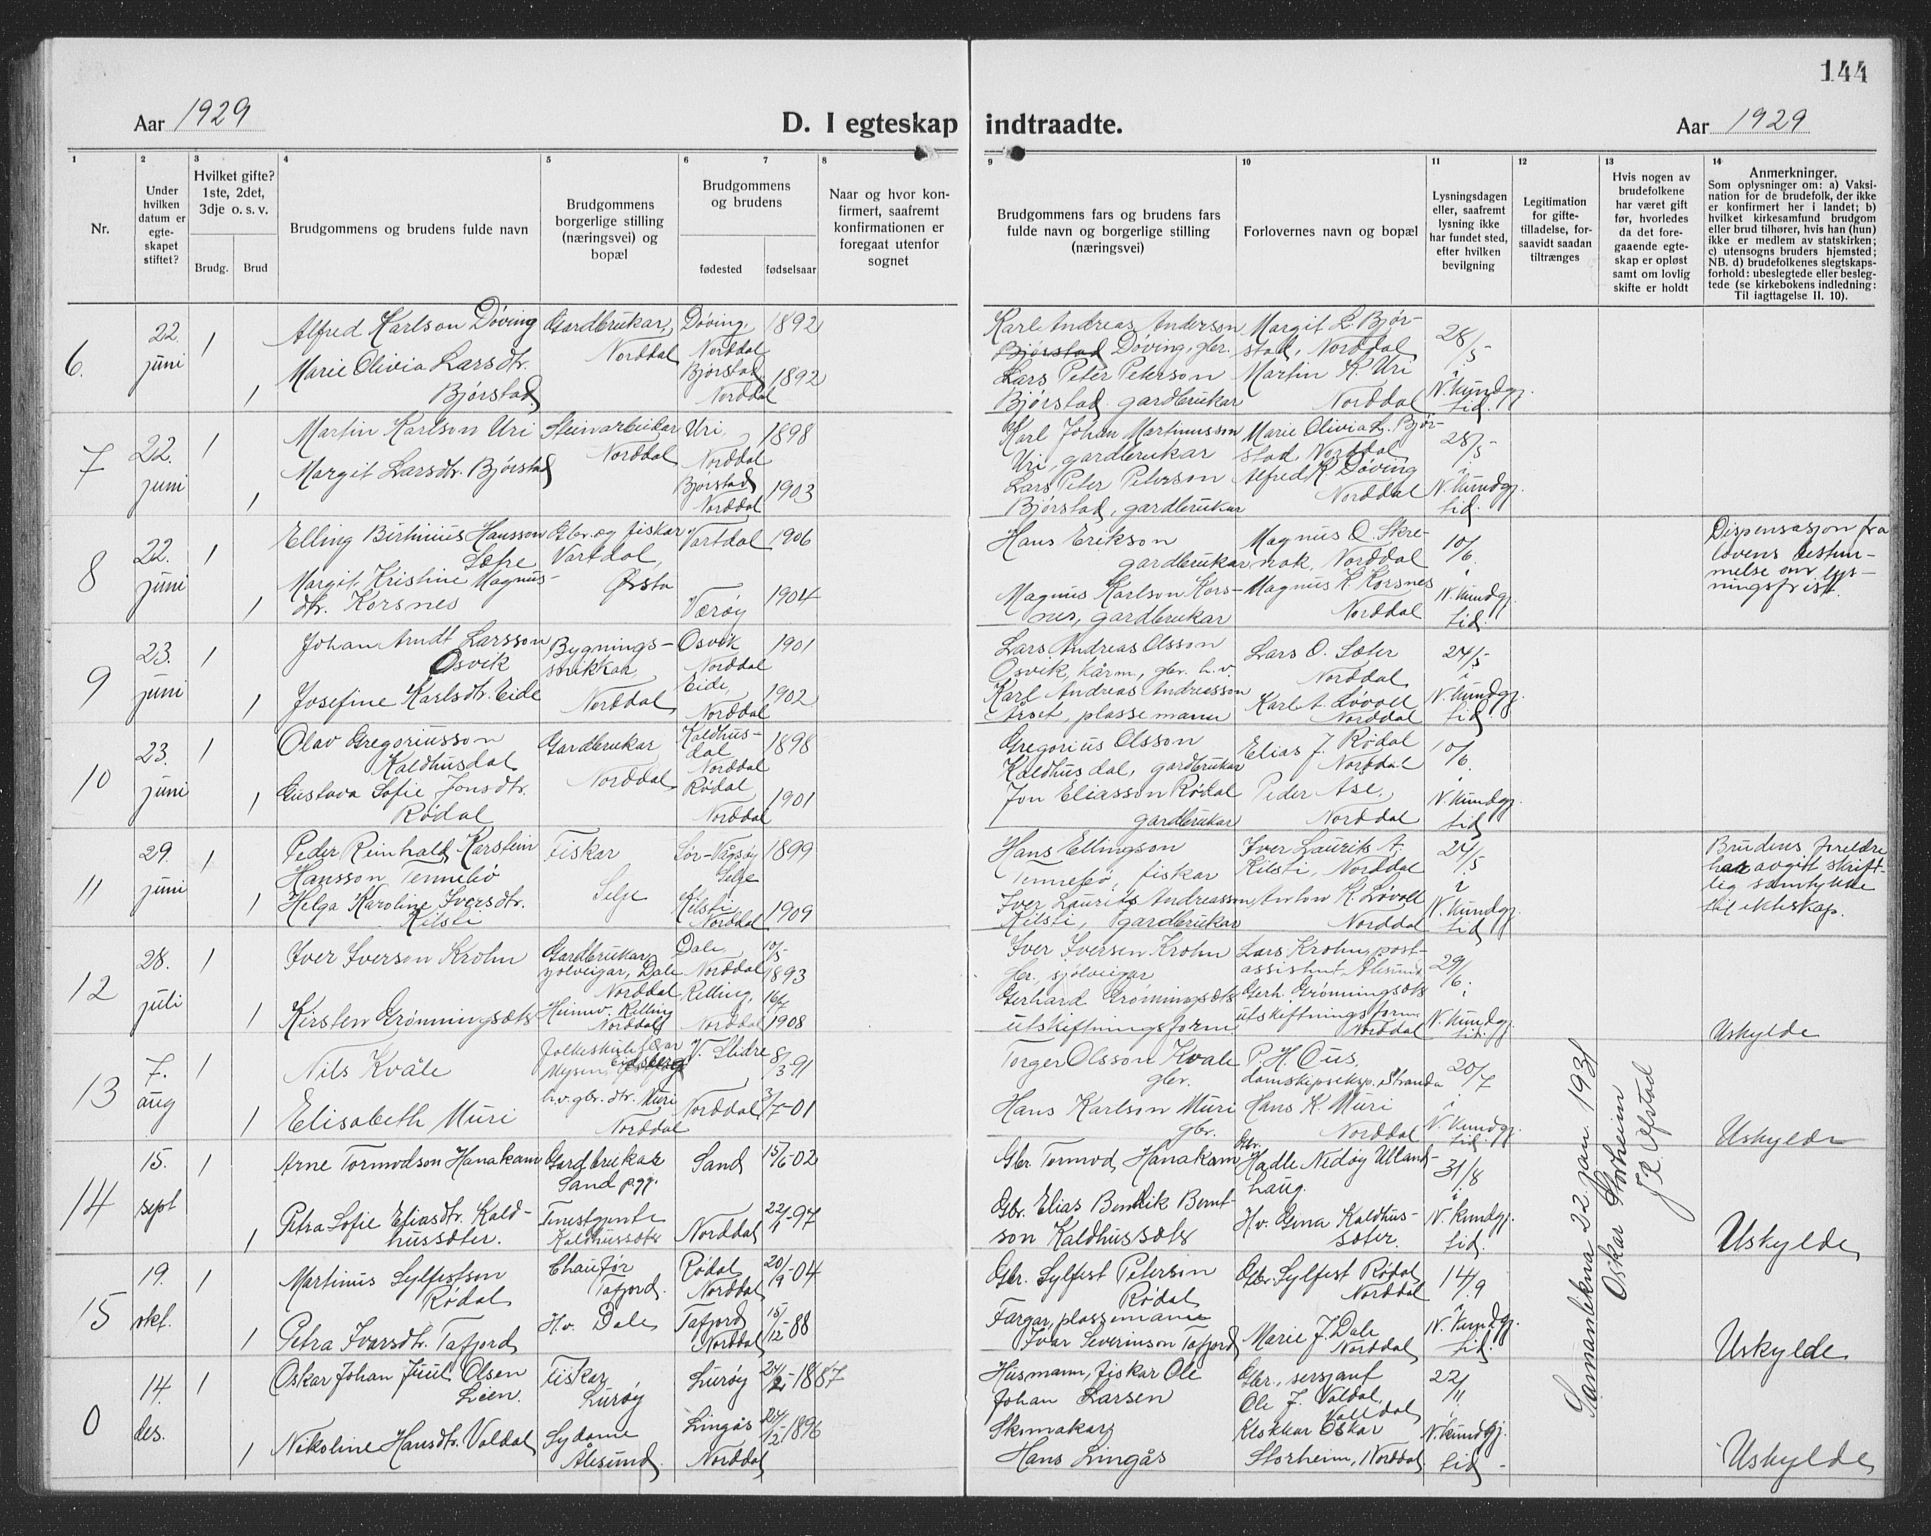 144
Aar 1929
D. I egteskap indtraadte.
Aar 1929
1
2
3
4
5
6
7
8
9
10
11
12
13
14
Nr.
Under
hvilken
datum er
egte-
skapet
stiftet?
Hvilket gifte?
1ste, 2det,
3dje o. s. v.
Brudg.
Brud
Brudgommens og brudens fulde navn
Brudgommens
borgerlige stilling
(næringsvei) og
bopæl
Brudgommens
og brudens
fødested
fødselsaar
Naar og hvor kon-
firmert, saafremt
konfirmationen er
foregaat utenfor
sognet
Brudgommens fars og brudens fars
fulde navn og borgerlige stilling
(næringsvei)
Forlovernes navn og bopæl
Lysningsdagen
eller, saafremt
lysning ikke
har fundet sted,
efter hvilken
bevilgning
Legitimation
for gifte-
tilladelse, for-
saavidt saadan
tiltrænges
Hvis nogen av
brudefolkene
har været gift
før, hvorledes
da det fore-
gaaende egte-
skap er opløst
samt om lovlig
skifte er holdt
Anmerkninger.
Som oplysninger om: a) Vaksi-
nation for de brudefolk, der ikke
er konfirmert her i landet; b)
hvilket kirkesamfund brudgom
eller brud tilhører, hvis han (hun)
ikke er medlem av statskirken;
c) utensogns bruders hjemsted;
NB. d) brudefolkenes slegtskaps-
forhold: ubeslegtede eller besleg-
tede (se kirkebokens indledning:
Til iagttagelse II. 10).
6.
22.
juni
1
1
Alfred Karlson Døving
Marie Olivia Larsdtr.
Bjørstad
Gardbrukar,
Norddal
Døving,
Norddal
Bjørstad
Norddal
1892
1892
Karl Andreas Anderson
Bjørstad Døving, gbr.
Lars Peter Peterson
Bjørstad gardbrukar
Margit L. Bjør-
stad, Norddal
Martin K. Uri
Norddal
28/5
i
N. Kundgj.
tid.
7
22.
juni
1
1
Martin Karlson Uri
Margit Larsdtr. Bjørstad
Steinarbeidar
Norddal
Uri,
Norddal
Bjørstad
Norddal
1898
1903
Karl Johan Martinusson
Uri, gardbrukar
Lars Peter Peterson
Bjørstad, gardbrukar
Marie Olivia L. Bjør-
stad Norddal
Alfred K Døving
Norddal
28/5
i
N. Kundgj.
tid.
8
22.
juni
1
1
Elling Bertinius Hansson
Sætre
Margit Kristine Magnus-
dtr. Korsnes
Gbr. og fiskar
Vartdal,
Ørsta
Vartdal
Værøy
1906
1904
Hans Erikson
gardbrukar
Magnus Karlson Kors-
nes, gardbrukar
Magnus O. Skre-
nak, Norddal
Magnus K. Korsnes
Norddal
10/6
i
N. Kundgj.
tid.
Dispensasjon fra
lovens bestem-
melse om lys-
ningsfrist.
9
23.
juni
1
1
Johan Arndt Larsson
Osvik
Josefine Karlsdtr. Eide
Bygnings-
snikkar,
Norddal
Osvik
Norddal
Eide,
Norddal
1901
1902
Lars Andreas Olsson
Osvik, kårm, gbr. h.v.
Karl Andreas Andreasson
plassemann
Lars O. Sæter
Norddal
Karl A. Løvoll
Norddal
24/5
i
N. Kundgj.
tid
10
23.
juni
1
1
Olav Gregoriusson
Kaldhusdal
Gustava Sofie Jonsdtr.
Rødal
Gardbrukar
Norddal
Kaldhus-
dal
Norddal
Rødal
Norddal
1898
1901
Gregorius Olsson
Kaldhusdal, gardbrukar
Jon Eliasson Rødal
gardbrukar
Elias J. Rødal
Norddal
Peder Åse,
Norddal
10/6
i
N. Kundgj.
tid
11
29.
juni
1
1
Peder Reinhald Karstein
Hansson Tennebø
Helga Karoline Iversdtr.
Kilsti
Fiskar
Selje
Sør-Vågsøy
Selje
Kilsti
Norddal
1899
1909
Hans Ellingson
Tennebø, fiskar
Iver Laurits Andreasson
Kilsti gardbrukar
Iver Laurits A.
Kilsti, Norddal
Anton K. Løvoll
Norddal
24/5
i
N. Kundgj.
tid
Brudens foreldre
har avgitt skrift-
lig samtykke
til ekteskap.
12
28.
juli
1
1
Iver Iverson Krohn
Kirsten Grønningsæter
Gardbrukar,
sjølveigar, Dale
Norddal
Heimv. Relling
Norddal
Dale,
Norddal
Relling,
Norddal
10/5
1893
16/7
1908
Iver Iversen Krohn
gbr. sjølveigar
Gerhard Grønningsæter
utskiftningsform
Lars Krohn, post-
assistent, Ålesund
Gerh. Grønningsæter
utskiftningsform
Norddal
29/6
i
N. Kundgj.
tid.
Uskylde
13
7.
aug
1
1
Nils Kvåle
Elisabeth Muri
Folkeskulelærar
Mysen, Eidsberg
h.v. gbr. dtr. Muri
Norddal
V. Slidre
Norddal
8/3-91
3/7-01
Torger Olsson Kvåle
gbr.
Hans Karlson Muri
gbr.
P. H. Ous,
damskipseksp. Stranda
Hans K. Muri
Norddal
20/7
i
N. Kundgj.
tid.
Uskylde
14
15.
sept
1
1
Arne Tormodson Hanakam
Petra Sofie Eliasdtr. Kald-
hussæter.
Gardbrukar
Sand
Tenestgente
Kaldhussæter
Sand
Norddal
15/6-02
22/1-97
Gbr. Tormod Hanakam
Gbr. Elias Bendik Bernt-
son Kaldhussæter
Gbr.
Hadle Nedøy Ulland-
haug.
Hv. Gina Kaldhus-
sæter.
31/8
i
N. kundgj.
tid.
Uskylde
15
19.
okt.
1
1
Martinus Sylfestson
Rødal
Petra Ivarsdtr. Tafjord
Chaufør
Tafjord.
H.v. Dale
Rødal
Norddal
Tafjord
Norddal
20/9-04
15/12-88
Gbr. Sylfest Peterson
Rødal
Fargar, plassemann
Ivar Severinson Tafjord
Gbr. Sylfest Rødal
Norddal
Marie J. Dale
Norddal
14/9
i
N. Kundgj.
tid.
Uskylde
0
14.
des.
1
1
Oskar Johan Juul Olsen
Lien.
Nikoline Hansdtr. Valdal
Fiskar
Lurøy
Sydame
Ålesund.
Lurøy
Lingås
Norddal
1887
1896
Husmann, fiskar Ole
Johan Larsen
Skomakar
Hans Lingås
Gbr., sersjant
Ole J. Valdal,
Valldal
Klokkar Oskar
Storheim, Norddal
22/11
i
N. kundgj.
tid -
Uskylde
Samanlekna 22 jan. 1931
Oskar Storheim